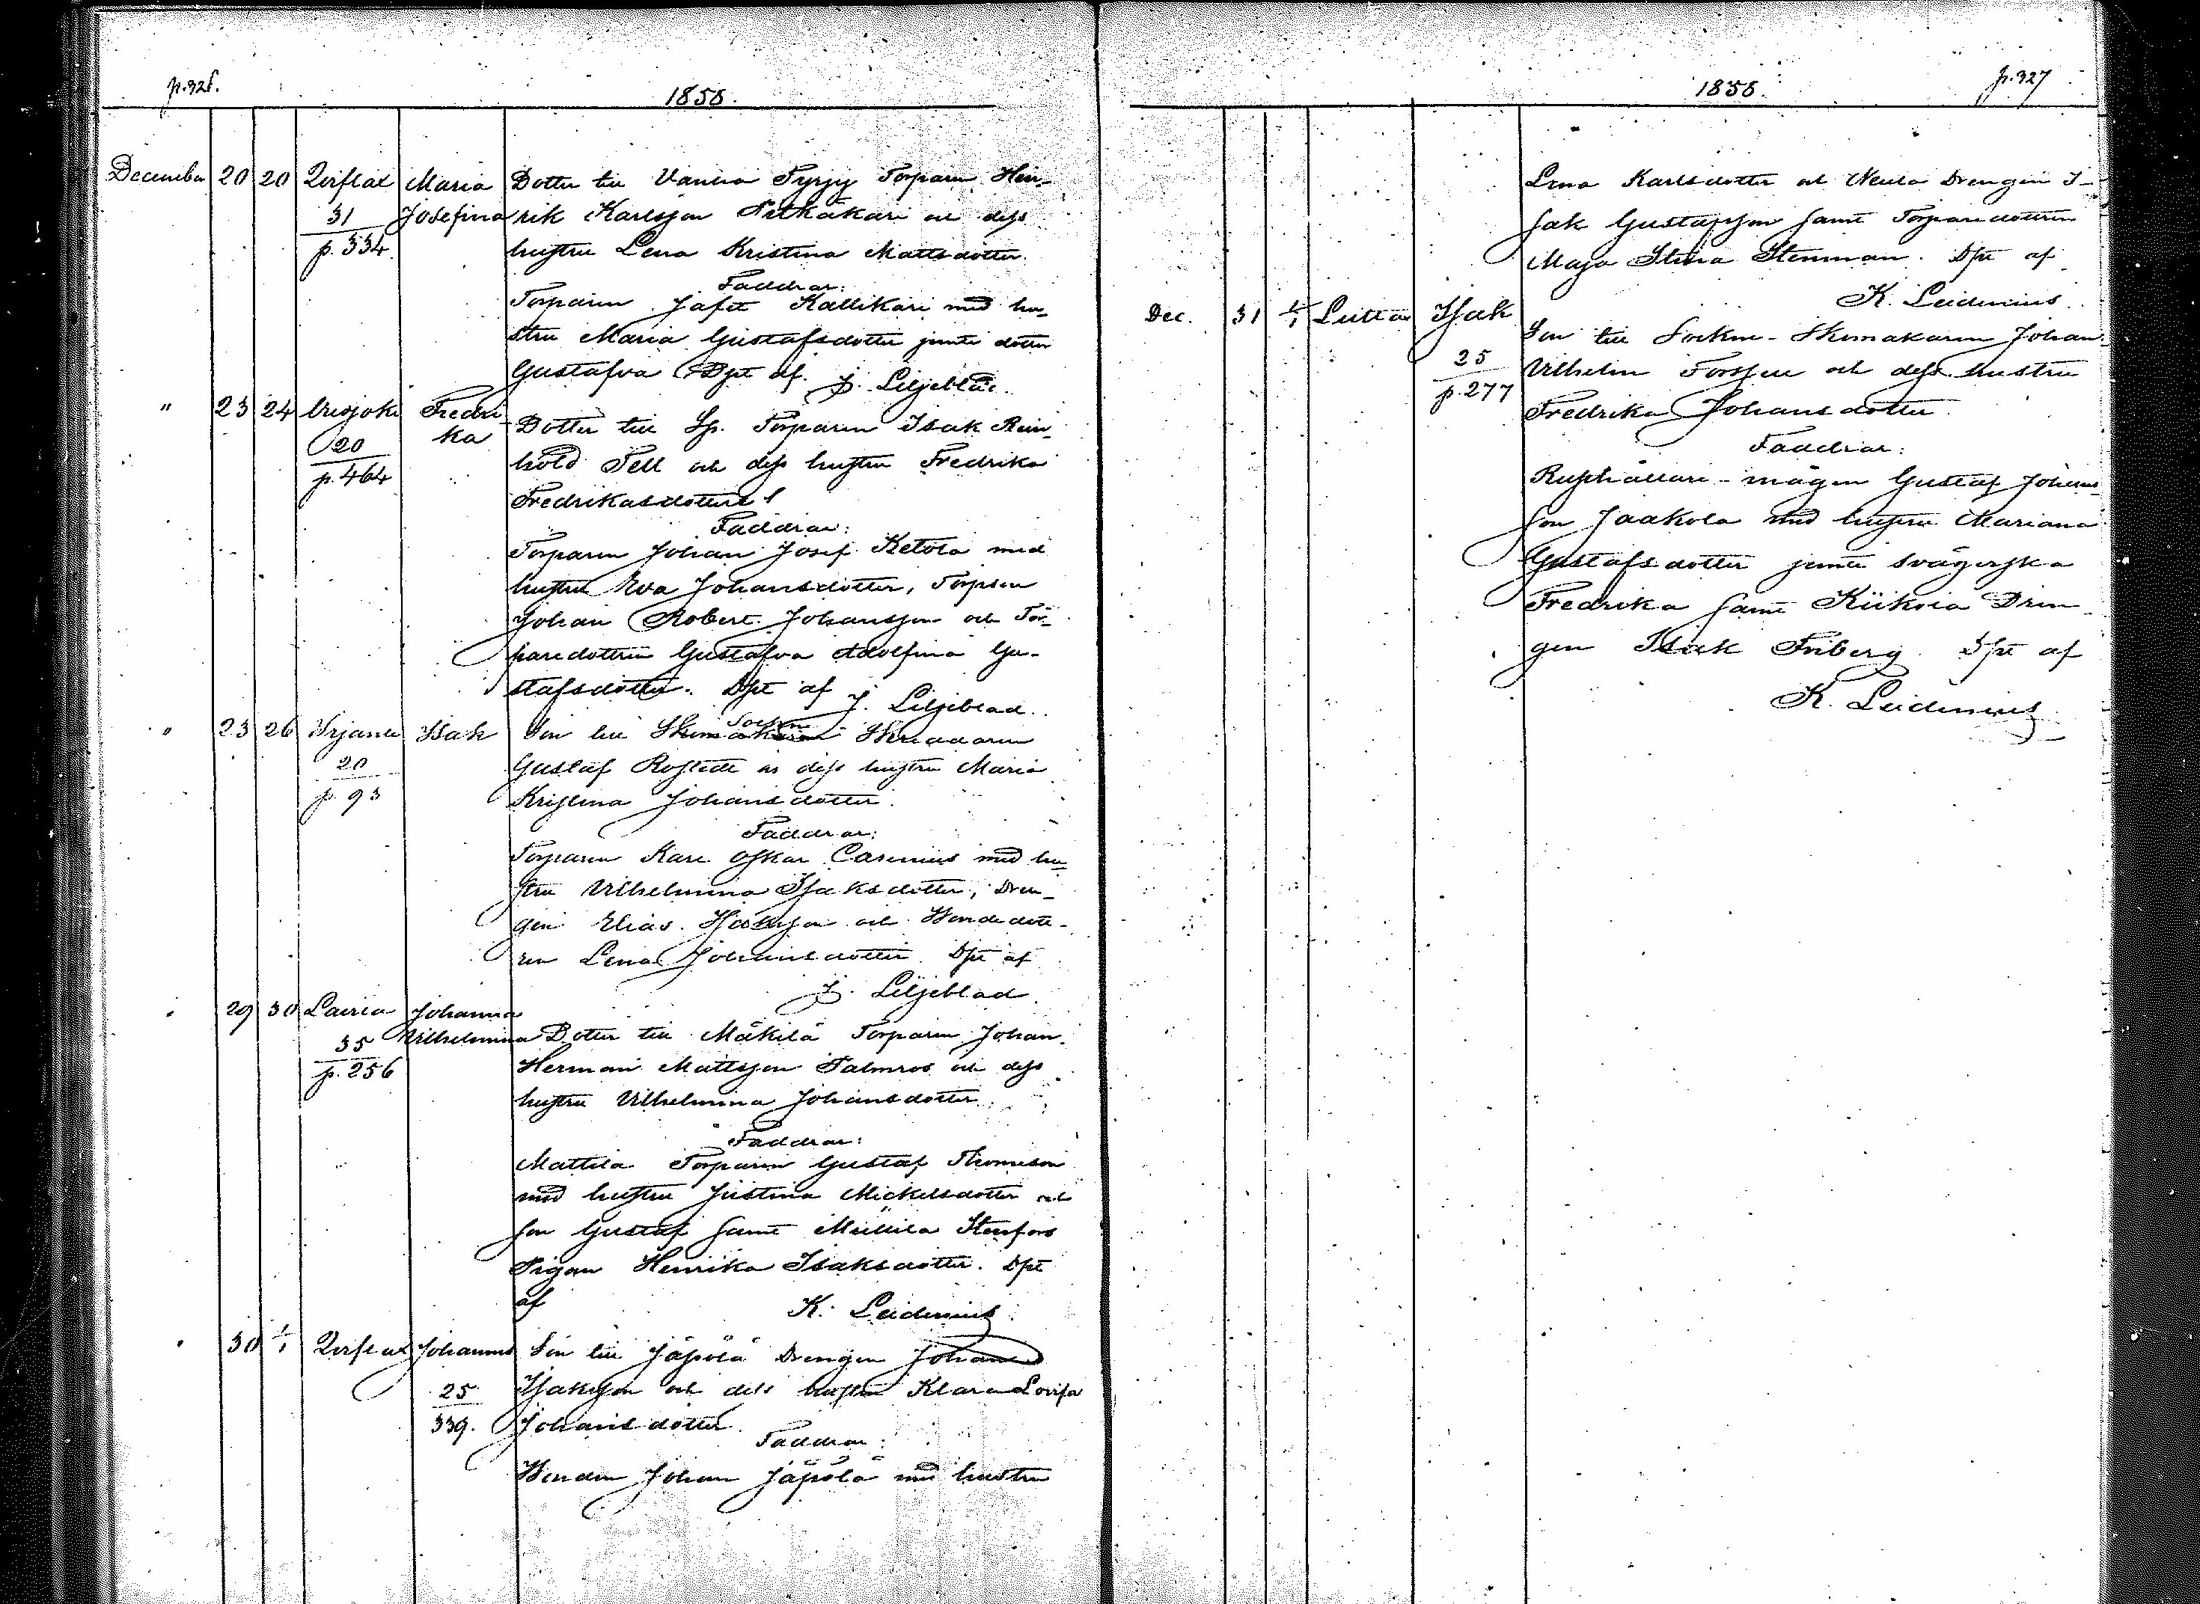 p. 326.
1858.
December 20 20 Qviflax Maria Dotter till Vanha Pyrjy Torparen Hen-
31 Josefina rik Karlsson Pitkäkari och dess
p. 334 hustru Lena Kristina Mattsdotter.
Faddrar:
Torparen Jafet Kallikari med hu-
stru Maria Gustafsdotter jemte dotter
Gustafva Dpt af. J. Liljeblad.
" 23 24 Fredri-
20 ka Dotter till Sp. Torparen Isak Rein-
p. 464 hold Tell och dess hustru Fredrika
Fredrikasdotter
Faddrar:
Torparen Johan Josef Ketola med
hustru Eva Johansdotter, Torpson
Johan Robert Johansson och Tor-
paredottren Gustafva Adolfina Gu-
stafsdotter. Dpt af J. Liljeblad.
" 23 26 Yrjana Isak Son till Socken Skräddaren
20 Gustaf Rostedt och dess hustru Maria
p. 93 Kristina Johansdotter.
Faddrar:
Torparen Karl Oskar Casenius med hu-
stru Vilhelmina Isaksdotter, Dren-
gen Elias Isaksson och Bondedott-
ren Lena Johansdotter. Dpt af
J. Liljeblad.
" 29 30 Lauria Johanna
35 Vilhelmina Dotter till Mäkilä Torparen Johan
p. 256 Herman Mattsson Palmros och dess
hustru Vilhelmina Johansdotter.
Faddrar:
Mattila Torparen Gustaf Thomsson
med hustru Justina Mickelsdotter och
son Gustaf samt Stenfors
Pigan Henrika Isaksdotter. Dpt
af K. Leidenius
" 30 1/1 Qviflax Johannes Son till Jäpölä Drengen Johan
25 Isaksson och dess hustru Klara Lovisa
339. Johansdotter.
Faddrar:
Bonden Johan Jäpölä med hustru
p. 327
1858.
Lena Karlsdotter och Drengen I-
sak Gustafsson samt Torparedottren
Maja Stina Stenman. Dpt af
K. Leidenius.
Dec. 31 1/1 Isak Son till Socken-Skomakaren Johan
25 Vilhelm Forssell och dess hustru
p. 277 Fredrika Johansdotter.
Faddrar:
Rusthållare-mågen Gustaf Johans-
son Jaakola med hustru Mariana
Gustafsdotter jemte svägerska
Fredrika samt Kiikoia Dren-
gen Isak Friberg. Dpt af
K. Leidenius